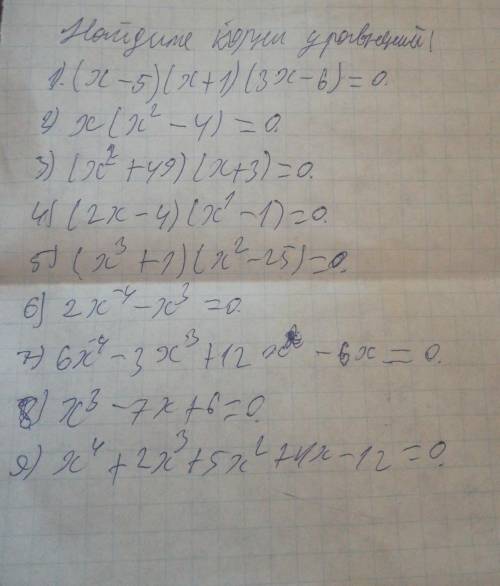 Найдите корни уравнений!
1). (x-5)(x+1)(3x-6)=0.
2) x(x²-4)=0.
3) (x²+49)(x+3)=0.
4) (2x-4)(x¹-1)=0.
5) (x³+1)(x²-25)=0.
6) 2x⁴-x³=0.
7) 6x⁴-3x³+12x -6x=0.
8) x³-7x+6=0.
9) x⁴+2x³+5x²+4x-12=0.